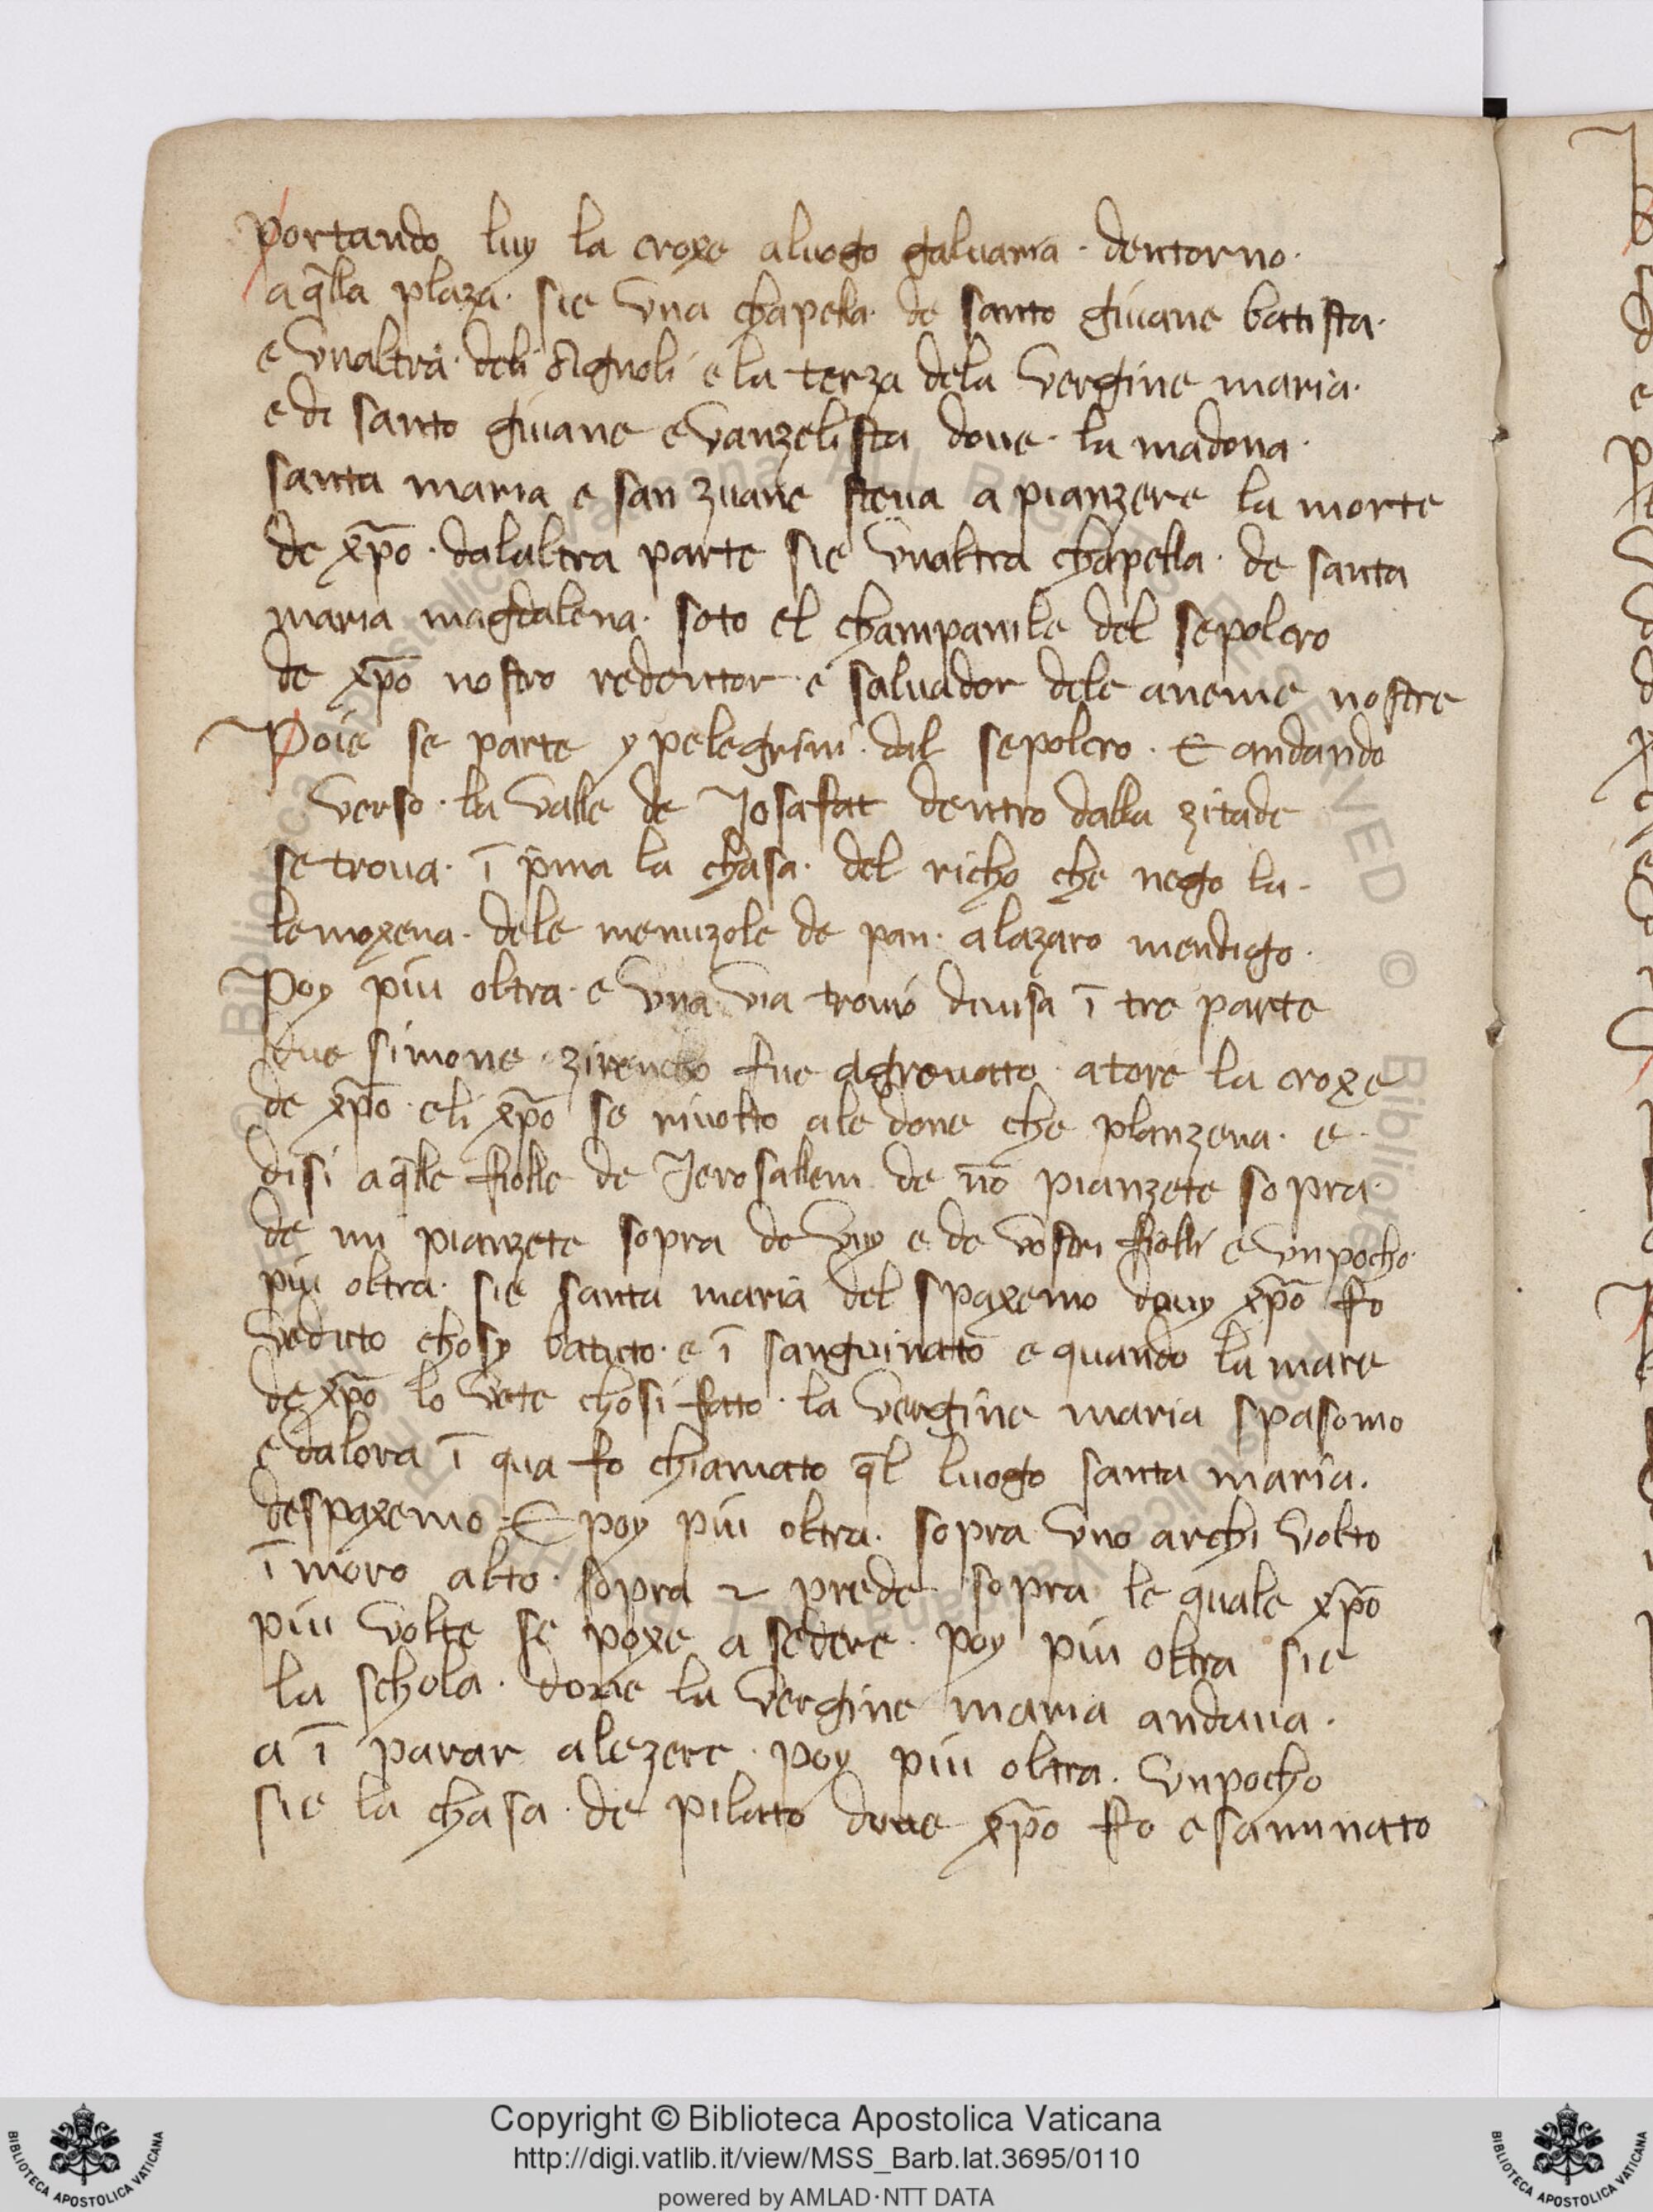 portando luy la croxe aluogo galuaria · dentorno ·
aq̄lla plaza · sie vna chapella · de santo giuane batista ·
e vnaltra · deli Agnoli e la terza dela vergine maria ·
e di santo giuane evanzelista doue · la madona ·
santa maria e san zuane steua a pianzere la morte
de xp̄o · dalaltra parte sie vnaltra chapella · de santa
maria magdalena · soto el champanile del sepolcro
de xp̄o nostro redentor e saluador dele aneme nostre
Poie se parte y pelegrini · dal sepolcro · E andando
verso · la valle de Josafat dentro dalla zitade
se troua · ī p̄ma la chasa · del richo che nego la ·
lemoxena · dele menuzole de pan · alazaro mendigo ·
Poy piu oltra · e vna via trouio diuisa ī tre parte
due simone · zireneo fue agreuatto · atore la croxe
de xp̄o · eli xp̄o se riuolto ale done che planzeua · e ·
disi aq̄lle fiolle de Jerosallem de nō pianzete sopra ·
de mi pianzete sopra de vuy e de vostri fiolli e vnpocho ·
piu oltra · sie santa maria del spaxemo douy xp̄o fo
veduto chosy batuto · e ī sanguinatto e quando la mare
de xp̄o lo vete chosi fatto · la vergine maria spasomo
e dalora ī qua fo chiamato q̄l luogo santa maria ·
despaxemo · E poy piu oltra · sopra vno archi volto
ī moro alto · sopra 2 prede sopra le quale xp̄o
piu volte se poxe a sedere · poy piu oltra sie
la schola · doue la vergine maria andaua ·
a ī parar alezere · poy piu oltra · vnpocho
sie la chasa · de pilatto doue xp̄o fo esaminatto
Copyright © Biblioteca Apostolica Vaticana
http://digi.vatlib.it/view/MSS_Barb.lat.3695/0110
powered by AMLAD·NTT DATA
BIBLIOTECA APOSTOLICA VATICANA
BIBLIOTECA APOSTOLICA VATICANA